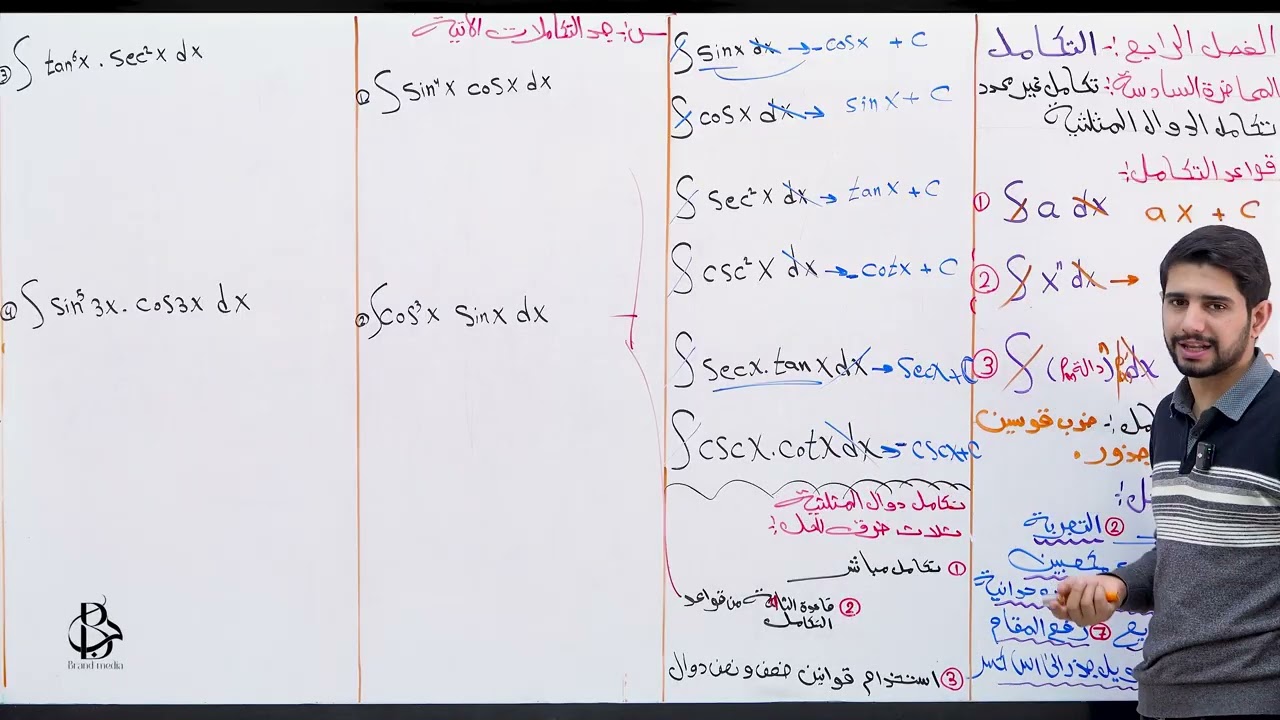 الفصل الرابع :- التكامل
المحاضرة السادسة : تكامل غير محدد
تكامل الدوال المثلثية
قواعد التكامل :-
① ∫ a dx   a x + c
② ∫ xⁿ dx →
③ ∫ (دالة)ⁿ dx
ضرب قوسين
جذور .
② التجربة
مكعبين
⑦ رفع المقام
∫ sinx dx → -cosx + c
∫ cosx dx → sinx + c
∫ sec²x dx → tanx + c
∫ csc²x dx → -cotx + c
∫ secx.tanx dx → secx + c
∫ cscx.cotx dx → -cscx + c
تكامل دوال المثلثية
ثلاث طرق للحل :
① تكامل مباشر
② قاعدة الثالثة من قواعد
التكامل
③ استخدام قوانين ضعف ونصف دوال
س :- جد التكاملات الآتية
① ∫ sin⁴x cosx dx
② ∫ cos³x sinx dx
③ ∫ tan⁶x . sec²x dx
④ ∫ sin⁵3x . cos3x dx
Brand media